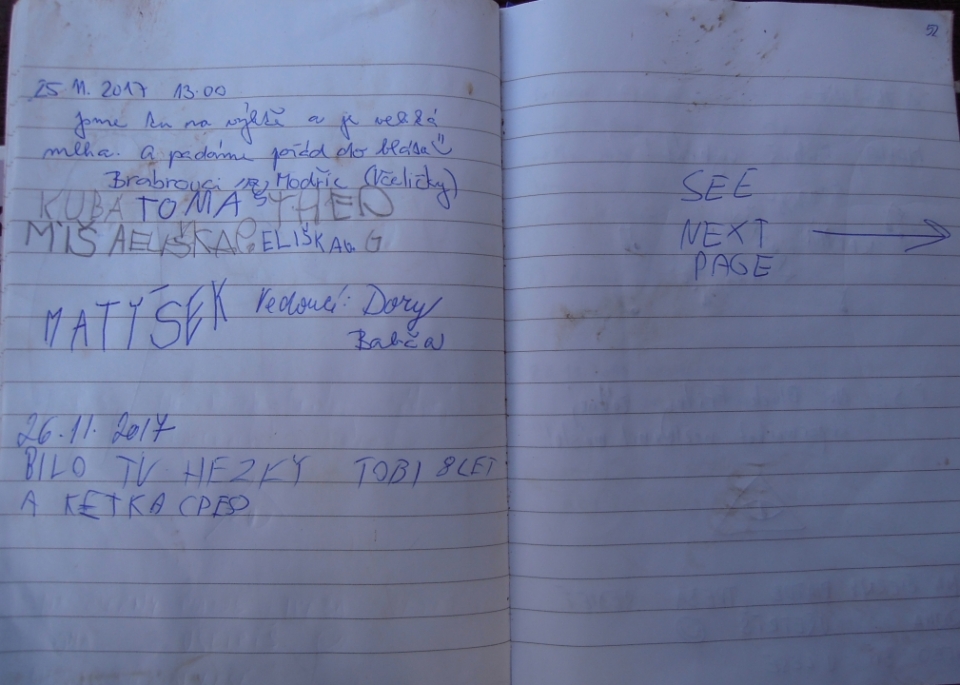 25.11.2017 13.00
Jsme tu na výletě a je velká
mlha. A padáme pořád do bláta
Brabrouci z Modřic (Včeličky)
KUBA TOMÁŠ THEO
MÍŠA ELIŠKA P. ELIŠKA G
MATÝSEK Vedoucí: Dory
Babča
26.11. 2017
BILO TV HEZKY TOBI 8 LET
A KETKA (PES)
52
SEE
NEXT
PAGE